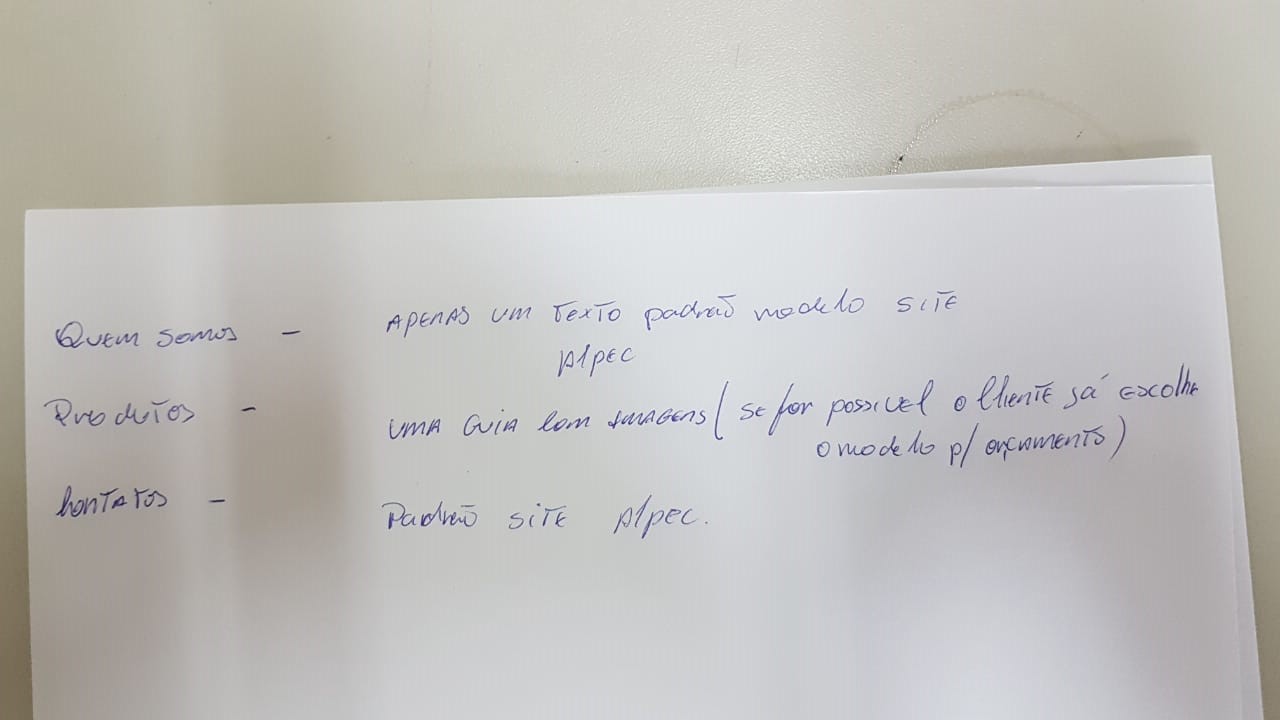 Quem somos - Apenas um texto padrão modelo site
Alpec
Produtos - uma guia com imagens (se for possivel o cliente já escolhe
o modelo p/ orçamento)
Contatos - Padrão site Alpec.